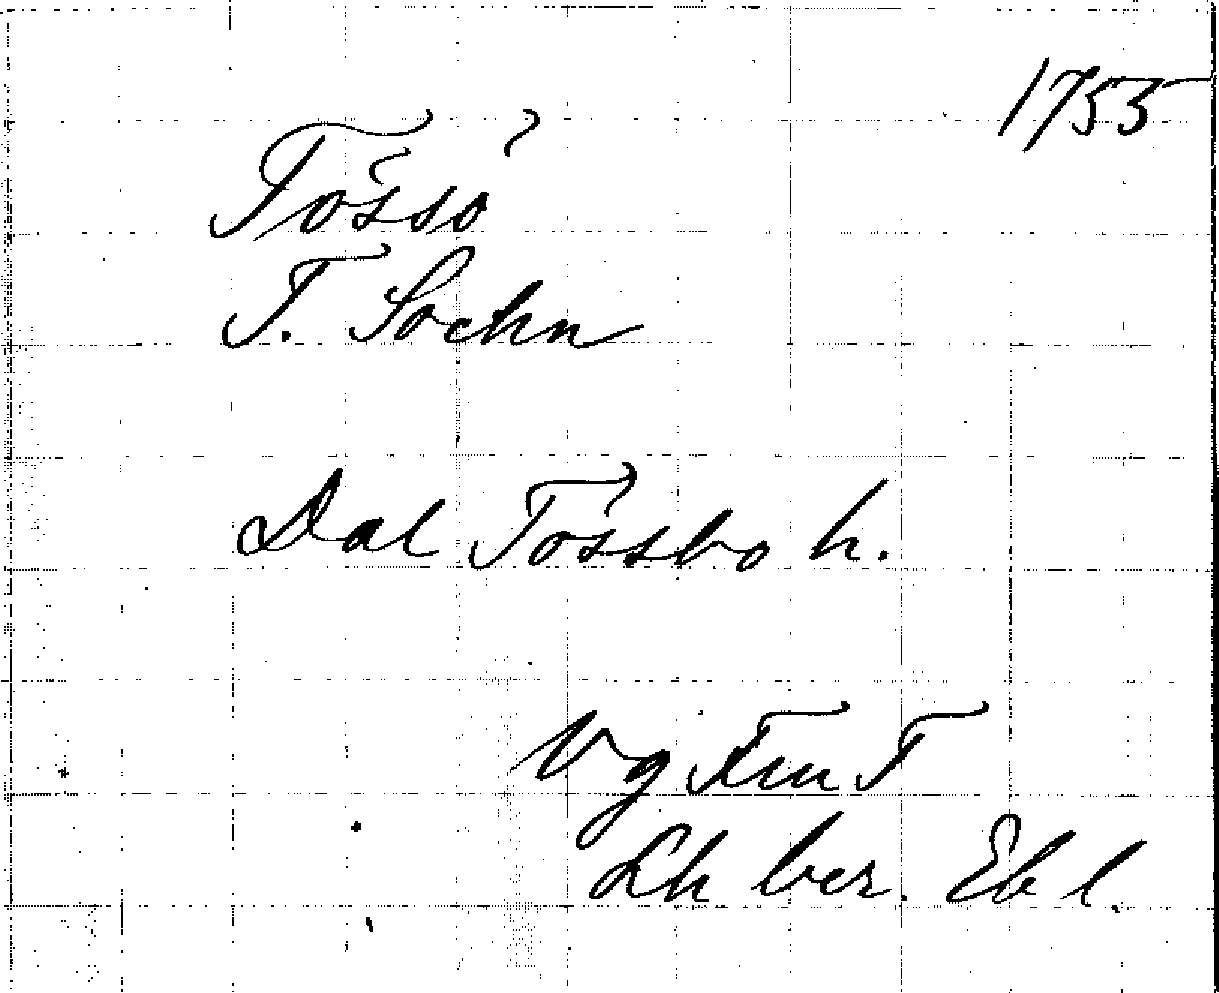 1755
Tössö
T. Sockn
Dal Tössbo h.
Vg Fru T
Lh ber. Ebl.